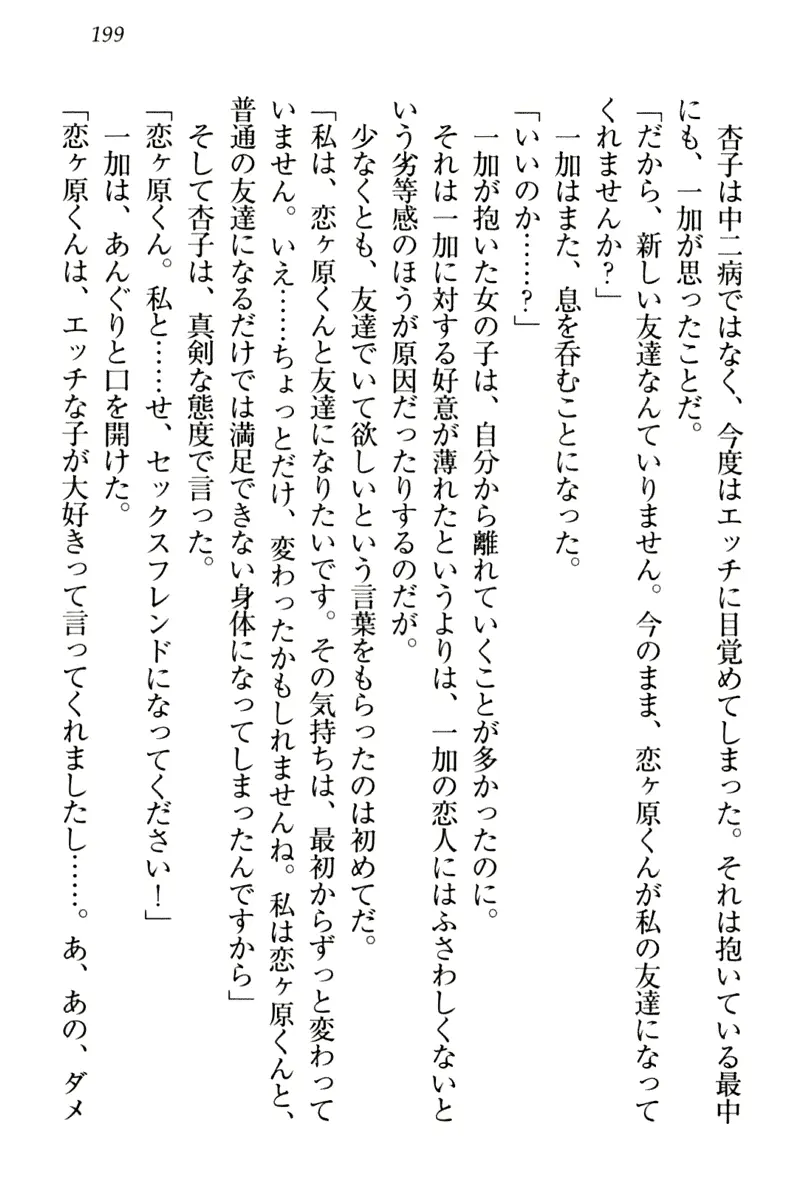 199
杏子は中二病ではなく、今度はエッチに目覚めてしまった。それは抱いている最中
にも、一加が思ったことだ。
「だから、新しい友達なんていりません。今のまま、恋ヶ原くんが私の友達になって
くれませんか?」
一加はまた、息を呑むことになった。
「いいのか……?」
一加が抱いた女の子は、自分から離れていくことが多かったのに。
それは一加に対する好意が薄れたというよりは、一加の恋人にはふさわしくないと
いう劣等感のほうが原因だったりするのだが。
少なくとも、友達でいて欲しいという言葉をもらったのは初めてだ。
「私は、恋ヶ原くんと友達になりたいです。その気持ちは、最初からずっと変わって
いません。いえ……ちょっとだけ、変わったかもしれませんね。私は恋ヶ原くんと、
普通の友達になるだけでは満足できない身体になってしまったんですから」
そして杏子は、真剣な態度で言った。
「恋ヶ原くん。私と……せ、セックスフレンドになってください!」
一加は、あんぐりと口を開けた。
「恋ヶ原くんは、エッチな子が大好きって言ってくれましたし……。あ、あの、ダメ